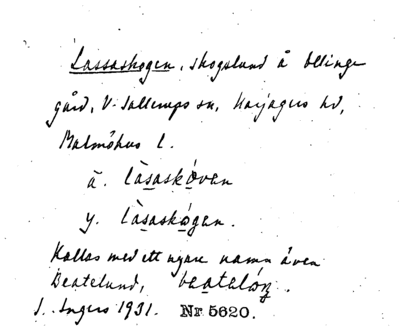 Lassaskogen, skogslund å Ellinge
gård, V. Sallerups sn, Harjagers hd,
Malmöhus l.
ä. làsaskóven
y. làsaskógen.
Kallas med ett yngre namn även
Beatelund,
I. Ingers 1931. Nr 5620.